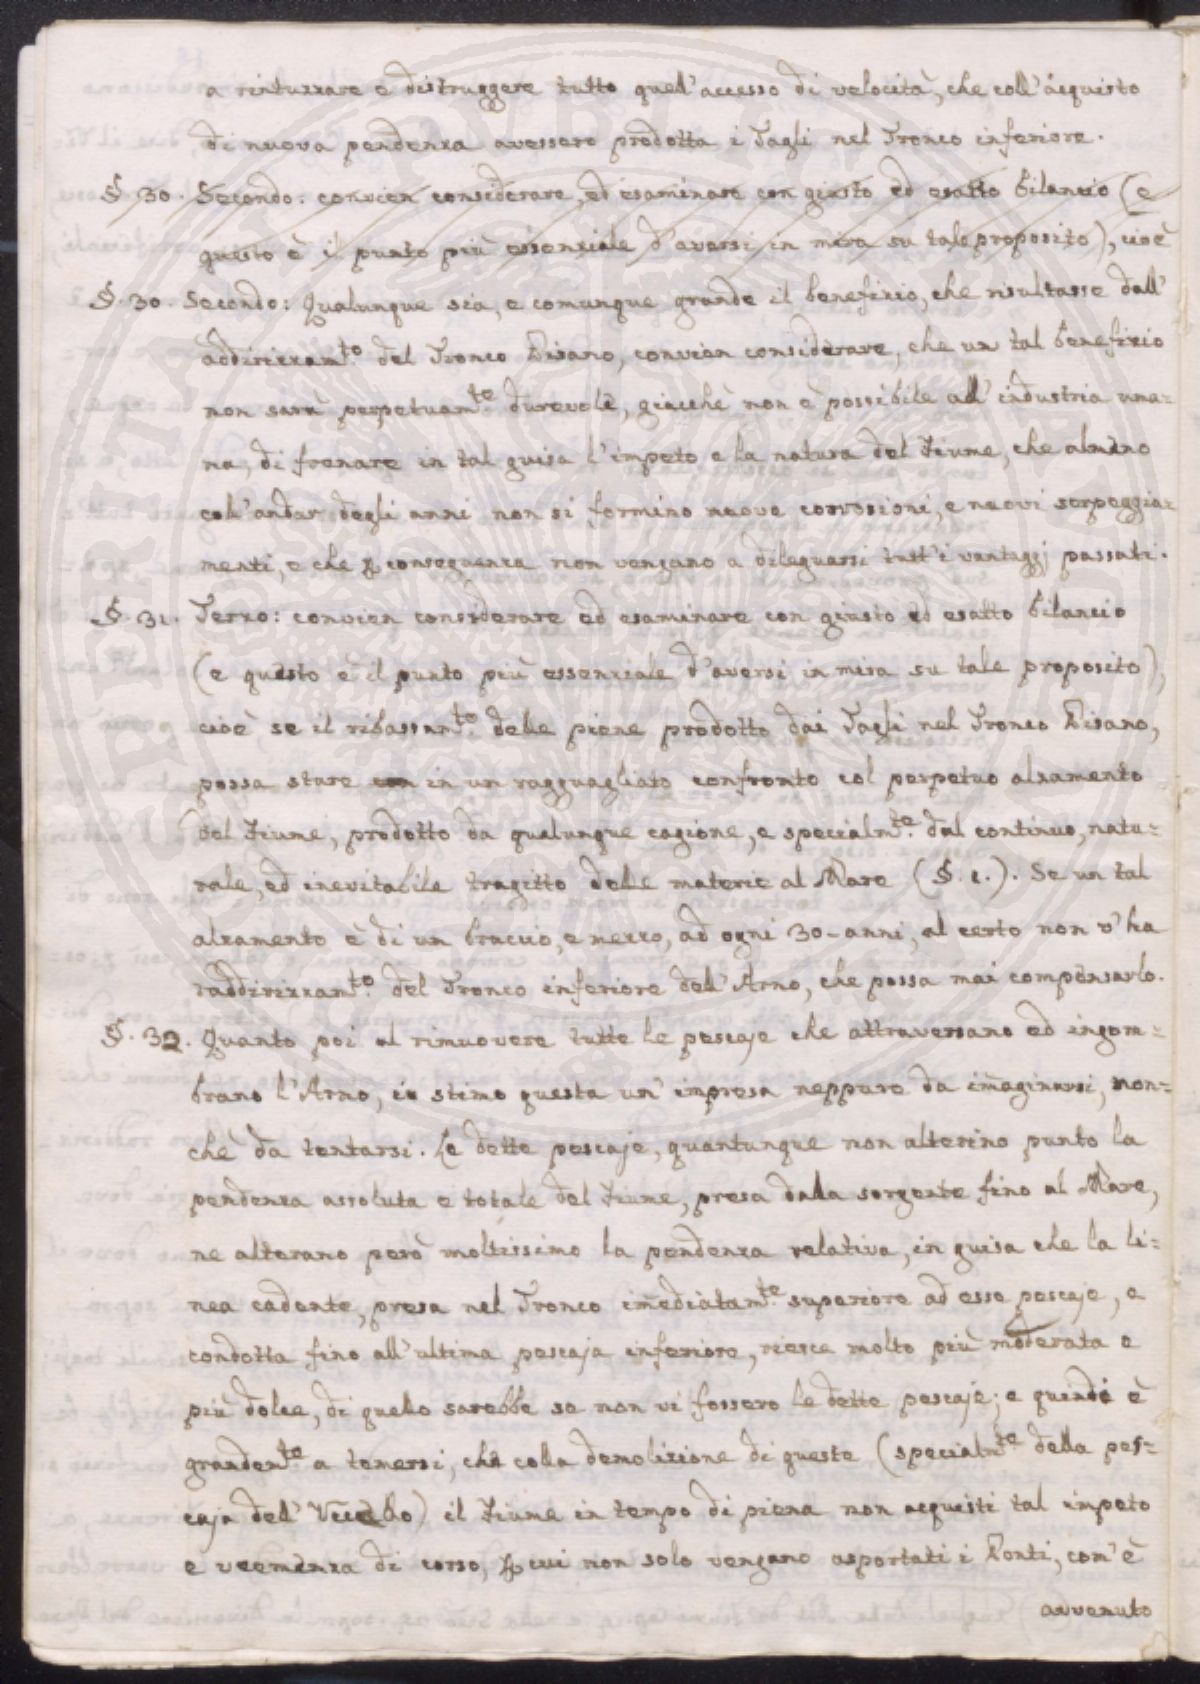 a rintuzzare e distruggere tutto quell'accesso di velocità, che coll'acquisto
di nuova pendenza avessero prodotta i Tagli nel Tronco inferiore.
§. 30. Secondo: convien considerare, ed esaminare con giusto ed esatto bilancio (e
questo è il punto più essenziale d'aversi in mira su tale proposito), cioè
§. 30. Secondo: Qualunque sia, e comunque grande il benefizio, che risultasse dall'
addirizzam.to del Tronco Pisano, convien considerare, che un tal benefizio
non sarà perpetuam.te durevole, giacchè non è possibile all'industria uma=
na, di frenare in tal guisa l'impeto e la natura del Fiume, che almeno
coll'andar degli anni non si formino nuove corrosioni, e nuovi serpeggia=
menti, e che p conseguenza non vengano a dileguarsi tutt'i vantaggj passati.
§. 31. Terzo: convien considerare ed esaminare con giusto ed esatto bilancio
(e questo è il punto più essenziale d'aversi in mira su tale proposito),
cioè se il ribassam.to delle piene prodotto dai Tagli nel Tronco Pisano,
possa stare con in un ragguagliato confronto col perpetuo alzamento
del Fiume, prodotto da qualunque cagione, e specialm.te dal continuo, natu=
rale, ed inevitabile tragitto delle materie al Mare (§. 1.). Se un tal
alzamento è di un braccio, e mezzo, ad ogni 30-anni, al certo non v'ha
raddirizzam.to del Tronco inferiore dell'Arno, che possa mai compensarlo.
§. 32. Quanto poi al rimuovere tutte le pescaje che attraversano ed ingom=
brano l'Arno, io stimo questa un'impresa neppure da im̃aginarsi, non=
chè da tentarsi. Le dette pescaje, quantunque non alterino punto la
pendenza assoluta e totale del Fiume, presa dalla sorgente fino al Mare,
ne alterano però moltissimo la pendenza relativa, in guisa che la li=
nea cadente, presa nel Tronco im̃ediatam.te superiore ad esse pescaje, e
condotta fino all'ultima pescaja inferiore, riesce molto più moderata e
più dolce, di quello sarebbe se non vi fossero le dette pescaje; e quindi è
grandem.te a temersi, che colla demolizione di queste (specialm.te della pes=
caja dell'Uccello) il Fiume in tempo di piena non acquisti tal impeto
e veemenza di corso, p cui non solo vengano asportati i Ponti, com'è
avvenuto